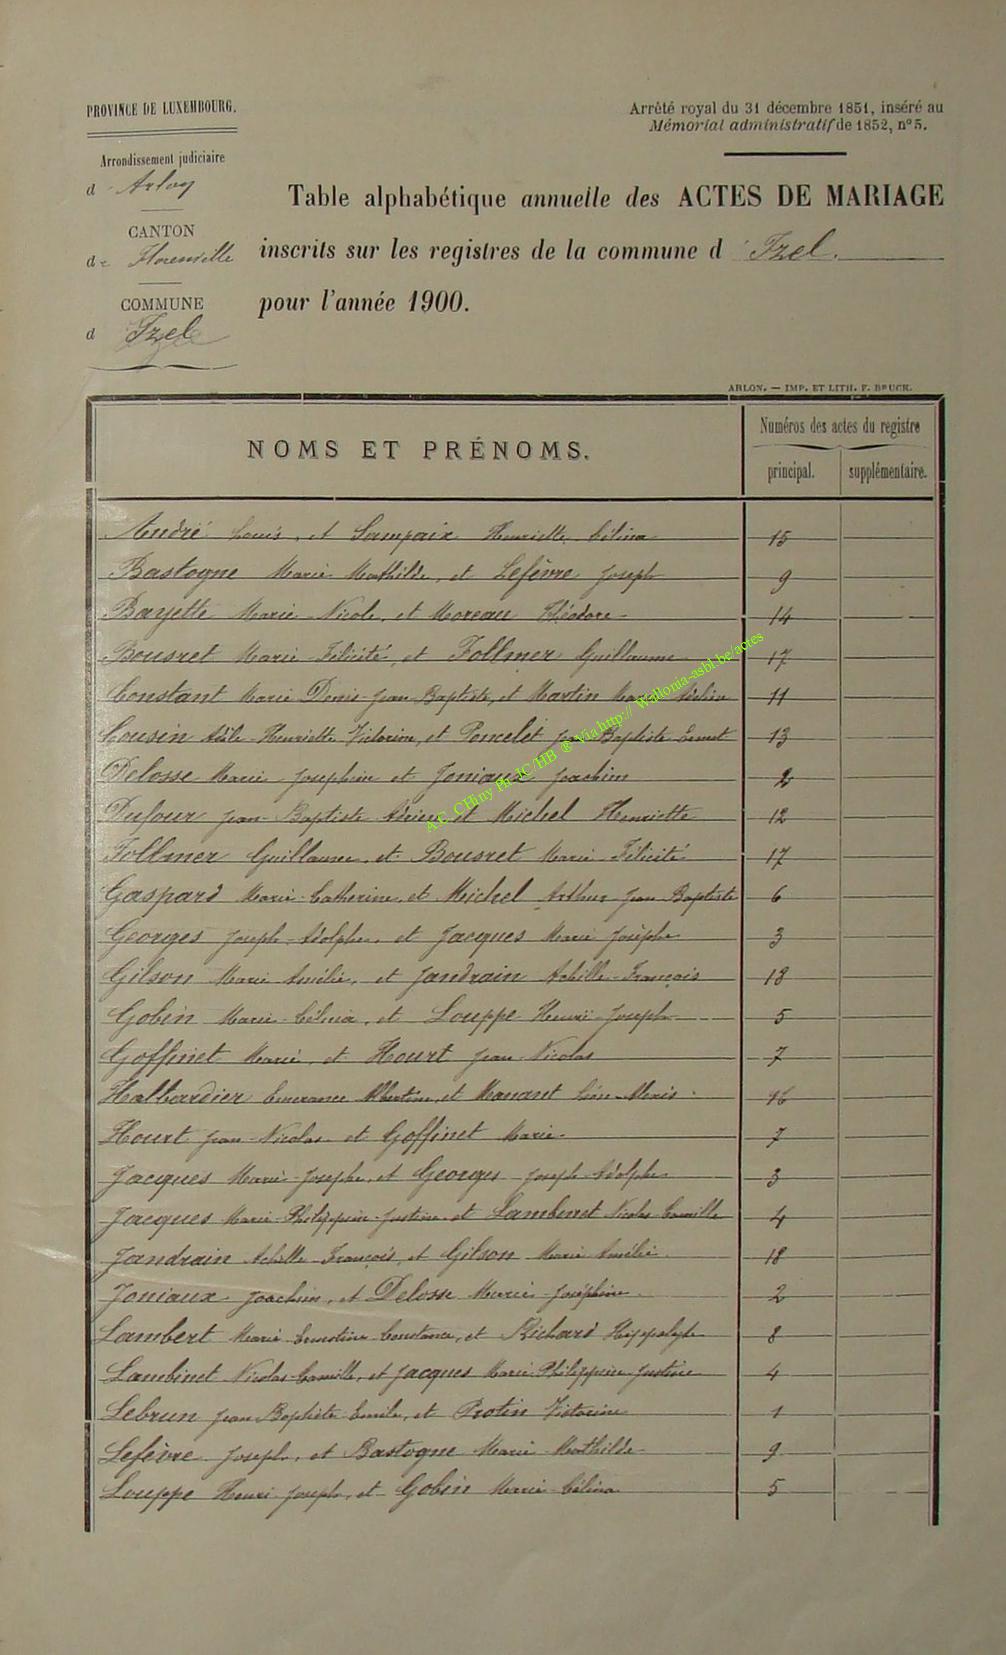 PROVINCE DE LUXEMBOURG.
Arrondissement judiciaire
d Arlon
CANTON
de Florenville
COMMUNE
d Izel
Arrêté royal du 31 décembre 1851, inséré au
Mémorial administratif de 1852, n° 5.
Table alphabétique annuelle des ACTES DE MARIAGE
inscrits sur les registres de la commune d'Izel.
pour l'année 1900.
ARLON. — IMP. ET LITH. F. BRUCK.
NOMS ET PRÉNOMS.
Numéros des actes du registre
principal. supplémentaire.
André Louis, et Sampaix Henriette Célina 15
Bastogne Marie Mathilde, et Lefèvre Joseph 9
Bayette Marie-Nicole, et Moreau Théodore 14
Bousret Marie Félicité, et Follmer Guillaume 17
Constant Marie Denis-Jean-Baptiste, et Martin Marie 11
Cousin Henriette Victorine, et Poncelet Jean Baptiste Ernest 13
Delosse Marie Josephine et Joniaux Joachim 2
Dufour Jean-Baptiste Adrien, et Michel Henriette 12
Follmer Guillaume, et Bousret Marie-Félicité 17
Gaspard Marie-Catherine, et Michel Arthur Jean Baptiste 6
Georges Joseph-Adolphe, et Jacques Marie Josèphe 3
Gilson Marie Amélie, et Jandrain Achille-François 18
Gobin Marie-Célina, et Louppe Henri-Joseph 5
Goffinet Marie, et Hourt Jean-Nicolas 7
Halbardier Emerance Albertine, et Manant Léon-Alexis 16
Hourt Jean-Nicolas et Goffinet Marie 7
Jacques Marie-Josephe, et Georges Joseph-Adolphe 3
Jacques Marie-Philippine-Justine et Lambinet Nicolas-Camille 4
Jandrain Achille-François, et Gilson Marie-Amélie 18
Joniaux Joachim, et Delosse Marie-Joséphine 2
Lambert Marie Ernestine Constance, et Richard Hippolyte 8
Lambinet Nicolas-Camille, et Jacques Marie-Philippine-Justine 4
Lebrun Jean-Baptiste-Emile, et Protin Victorine 1
Lefèvre Joseph, et Bastogne Marie-Mathilde 9
Louppe Henri-Joseph, et Gobin Marie-Célina 5
A.E. CHiny Ph JC/HB ® Via http:// Wallonia-asbl.be/actes